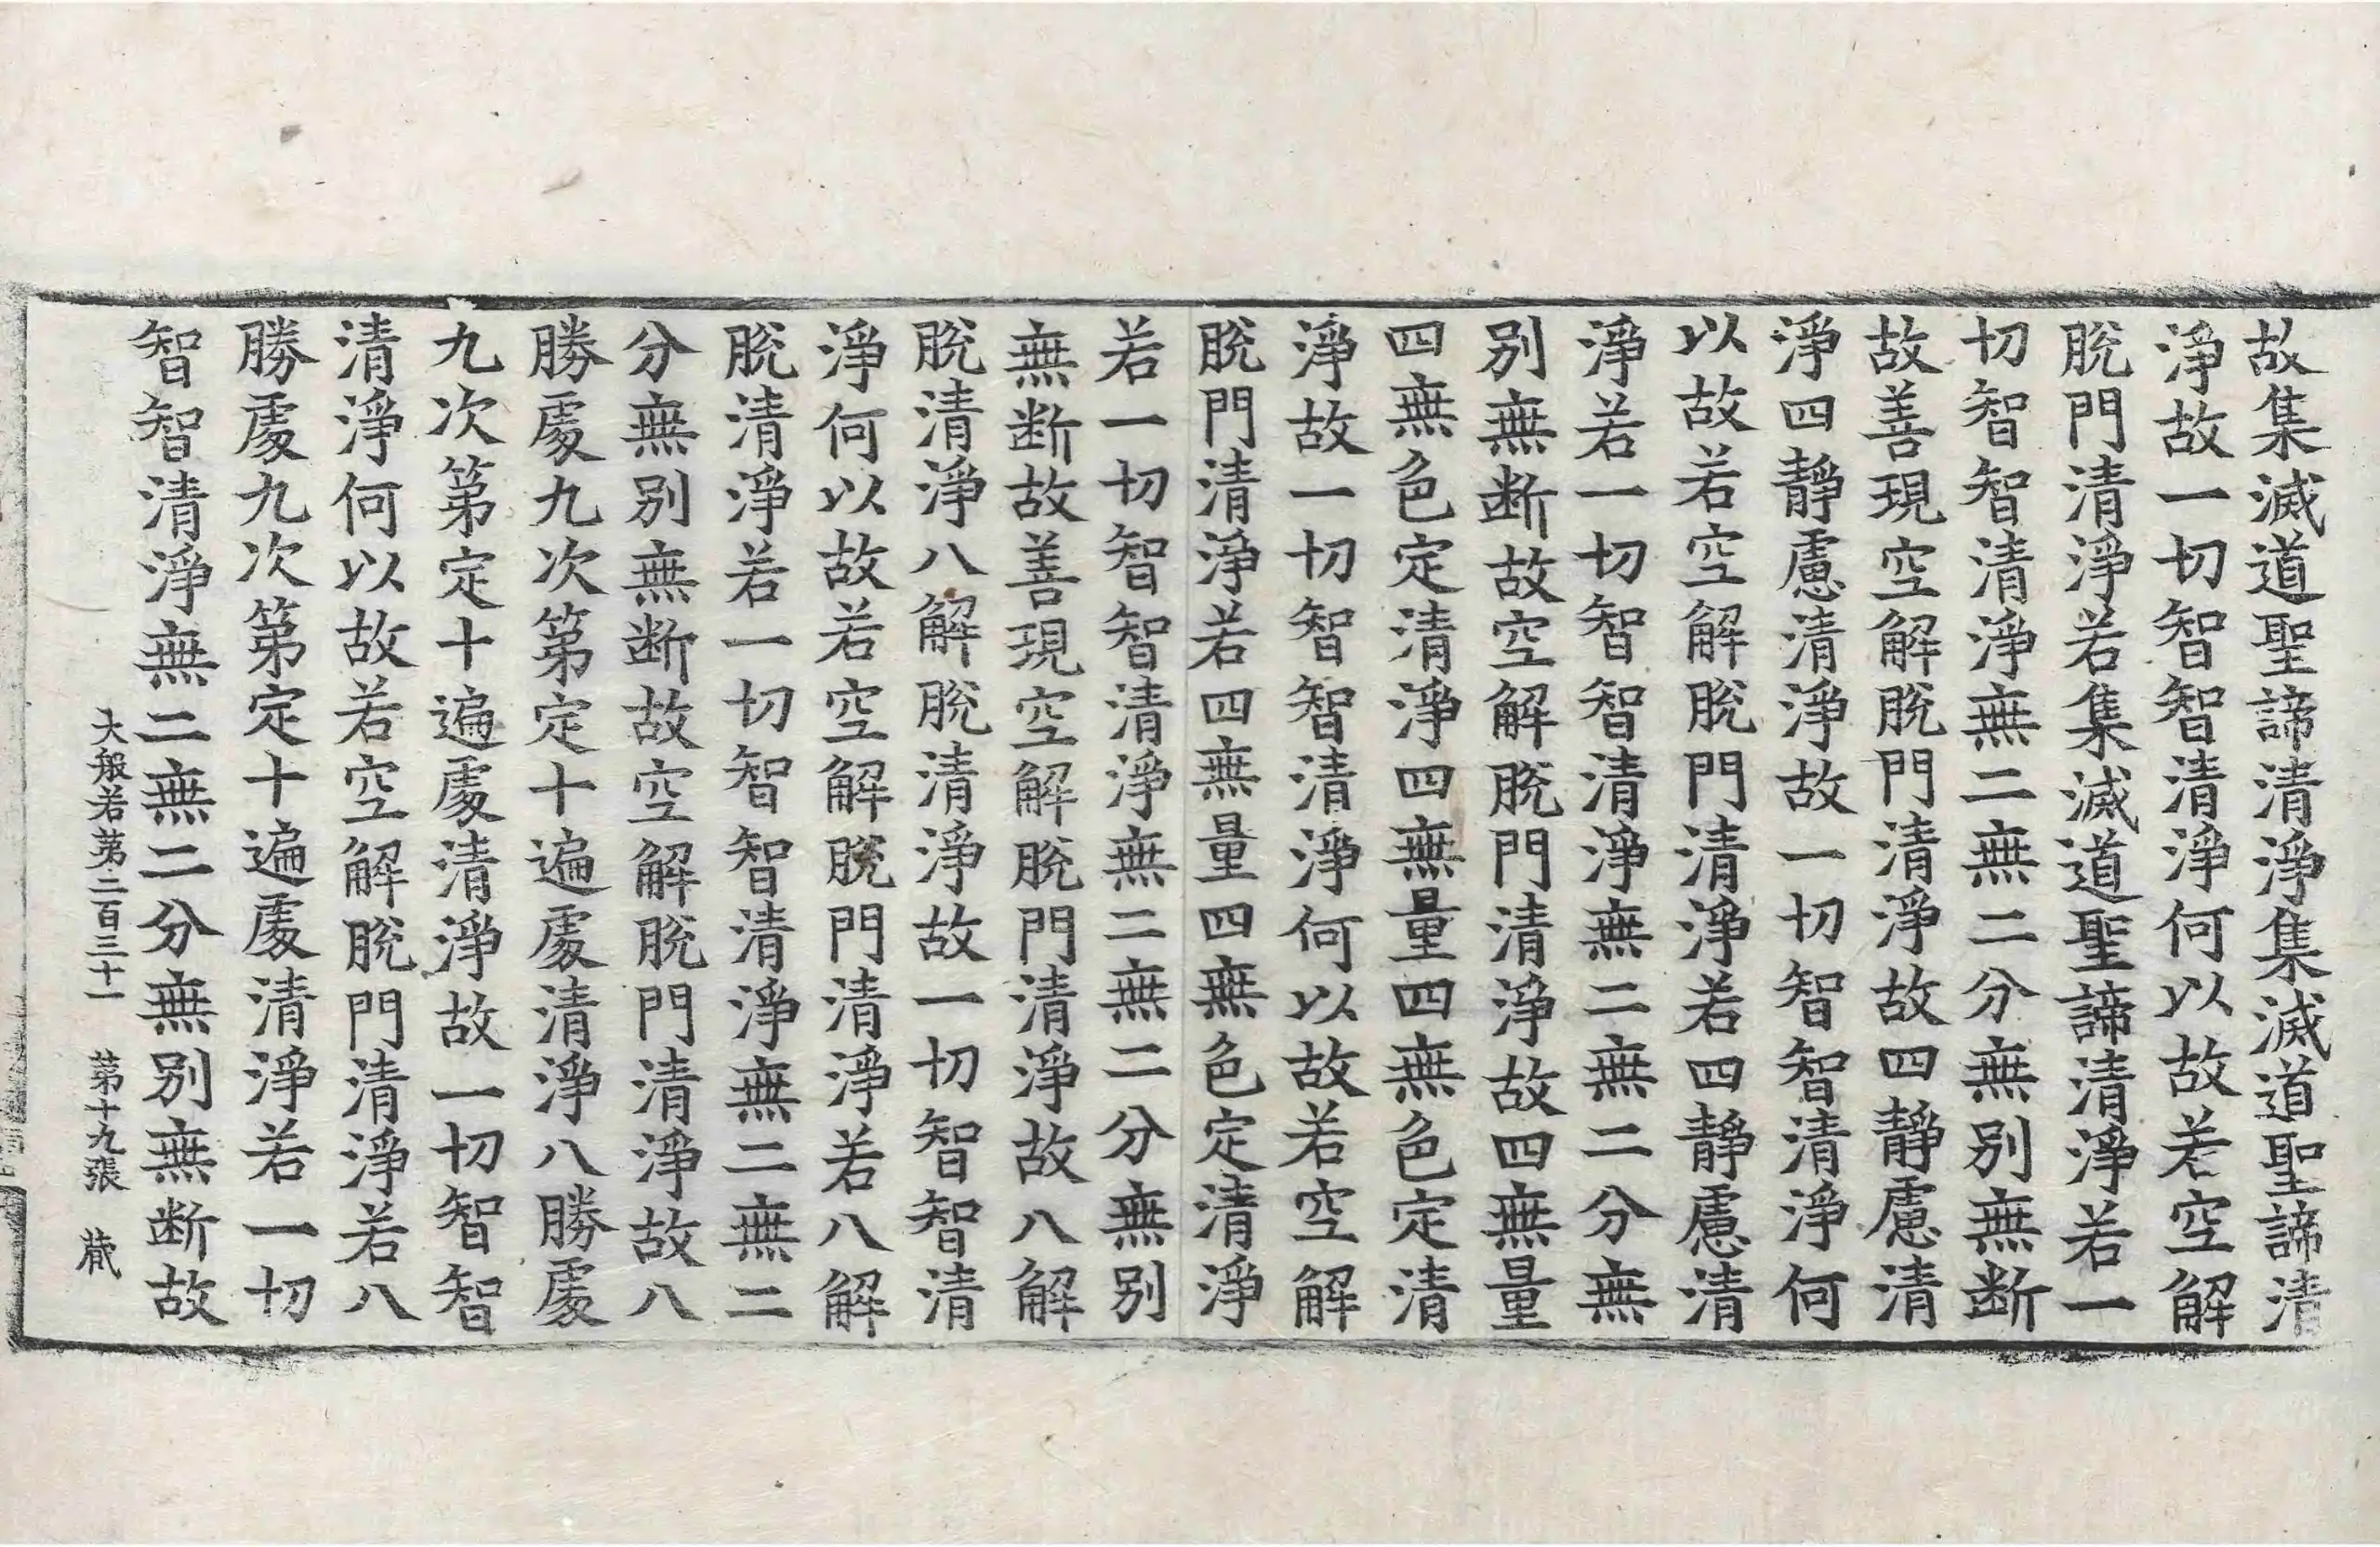 故集滅道聖諦清淨集滅道聖諦清
淨故一切智智清淨何以故若空解
脫門清淨若集滅道聖諦清淨若一
切智智清淨無二無二分無別無断
故善現空解脫門清淨故四靜慮清
淨四靜慮清淨故一切智智清淨何
以故若空解脫門清淨若四靜慮清
淨若一切智智清淨無二無二分無
別無断故空解脫門清淨故四無量
四無色定清淨四無量四無色定清
淨故一切智智清淨何以故若空解
脫門清淨若四無量四無色定清淨
若一切智智清淨無二無二分無別
無断故善現空解脫門清淨故八解
脫清淨八解脫清淨故一切智智清
淨何以故若空解脫門清淨若八解
脫清淨若一切智智清淨無二無二
分無別無断故空解脫門清淨故八
勝處九次第定十遍處清淨八勝處
九次第定十遍處清淨故一切智智
清淨何以故若空解脫門清淨若八
勝處九次第定十遍處清淨若一切
智智清淨無二無二分無別無断故
大般若第二百三十一 第十九張 蔵